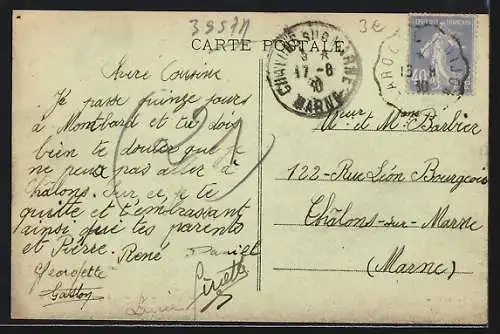 3957N
3€
CARTE POSTALE
CHALONS SUR MARNE
17-8
30
MARNE
40
Chère Cousine
Je passe quinze jours
à Montbard et tu dois
bein te douter que je
ne peux pas aller à
Châlons. Sur ce, je te
quitte et t'embrassant
ainsi que tes parents
et Pierre. René
Daniel
Georgette
Gaston
Ginette
Mr et Mme Barbier
122-Rue Léon Bourgeois
Châlons-sur-Marne
(Marne)